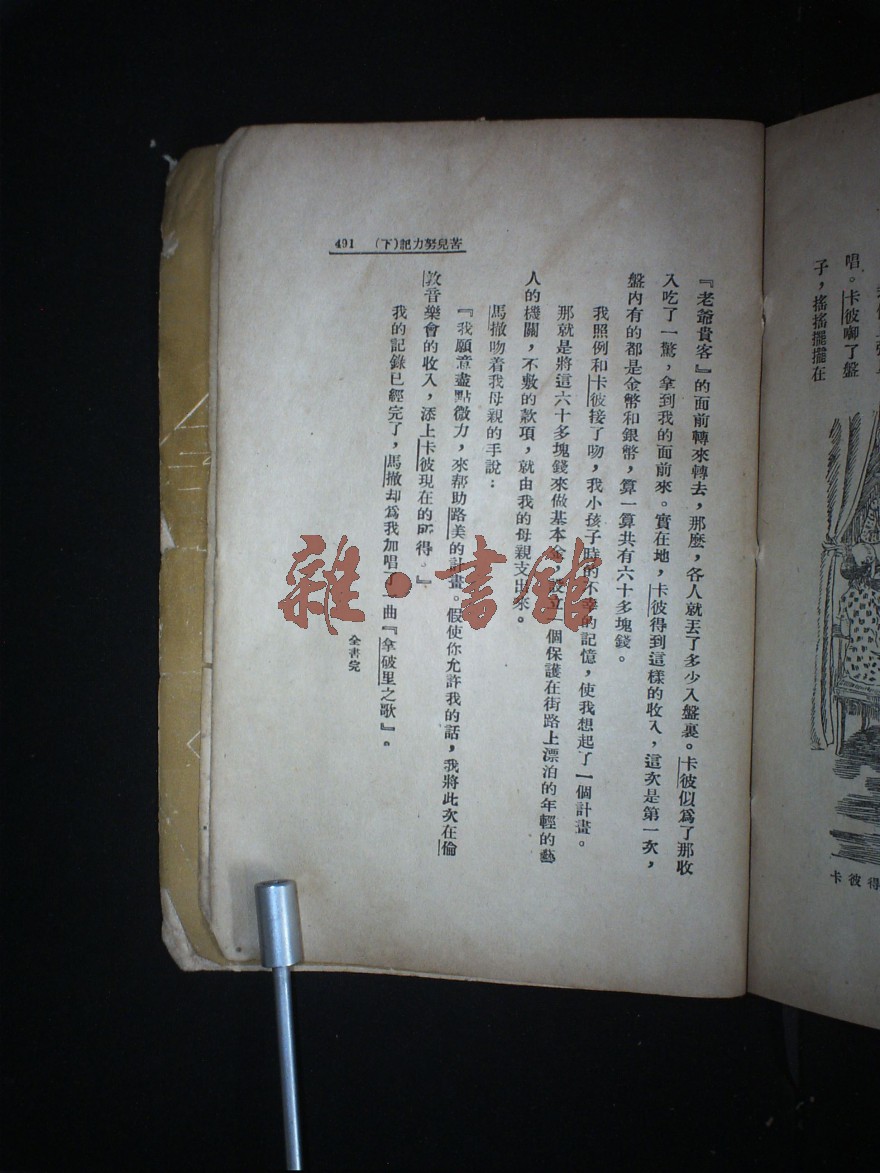 491 （下）記力努兒苦
『老爺貴客』的面前轉來轉去，那麽，各人就丟了多少入盤裏。卡彼似爲了那收
入吃了一驚，拿到我的面前來。實在地，卡彼得到這樣的收入，這次是第一次，
盤内有的都是金幣和銀幣，算一算共有六十多塊錢。
我照例和卡彼接了吻，我小孩子時的不幸的記憶，使我想起了一個計畫。
那就是將這六十多塊錢來做基本金，設立一個保護在街路上漂泊的年輕的藝
人的機關，不敷的款項，就由我的母親支出來。
馬撤吻着我母親的手說：
『我願意盡點微力，來帮助路美的計畫。假使你允許我的話，我將此次在倫
敦音樂會的收入，添上卡彼現在的所得。』
我的記錄已經完了，馬撤却爲我加唱了一曲『拿破里之歌』。
全書完
唱。卡彼啣了盤
子，搖搖擺擺在
卡彼得
雜·書館